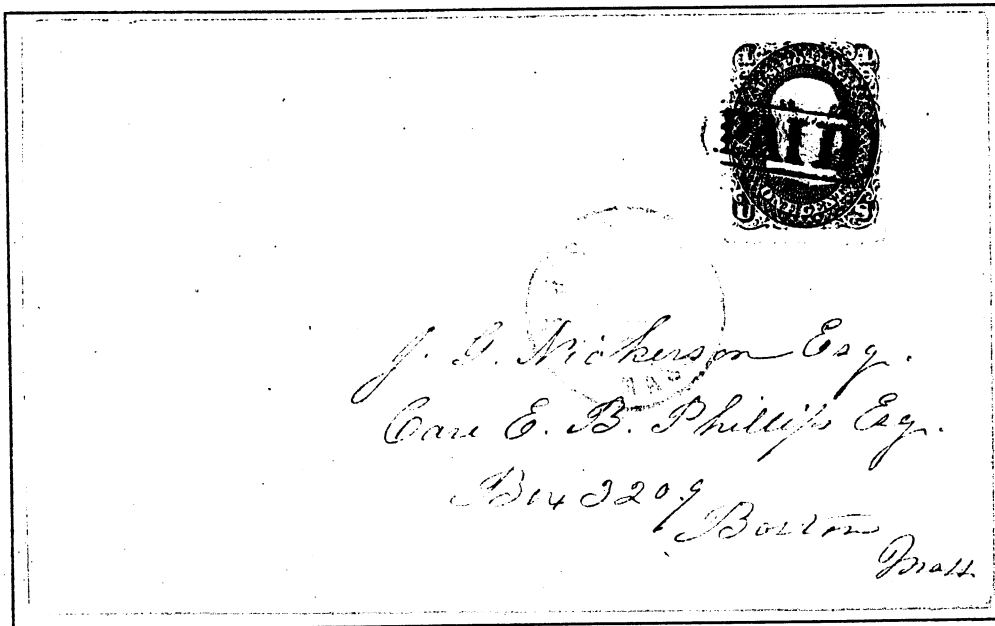 PAID
ONE CENT
U S
J. G. Nickerson Esq.
Care E. B. Phillips Esq.
Box 3209
Boston
Mass